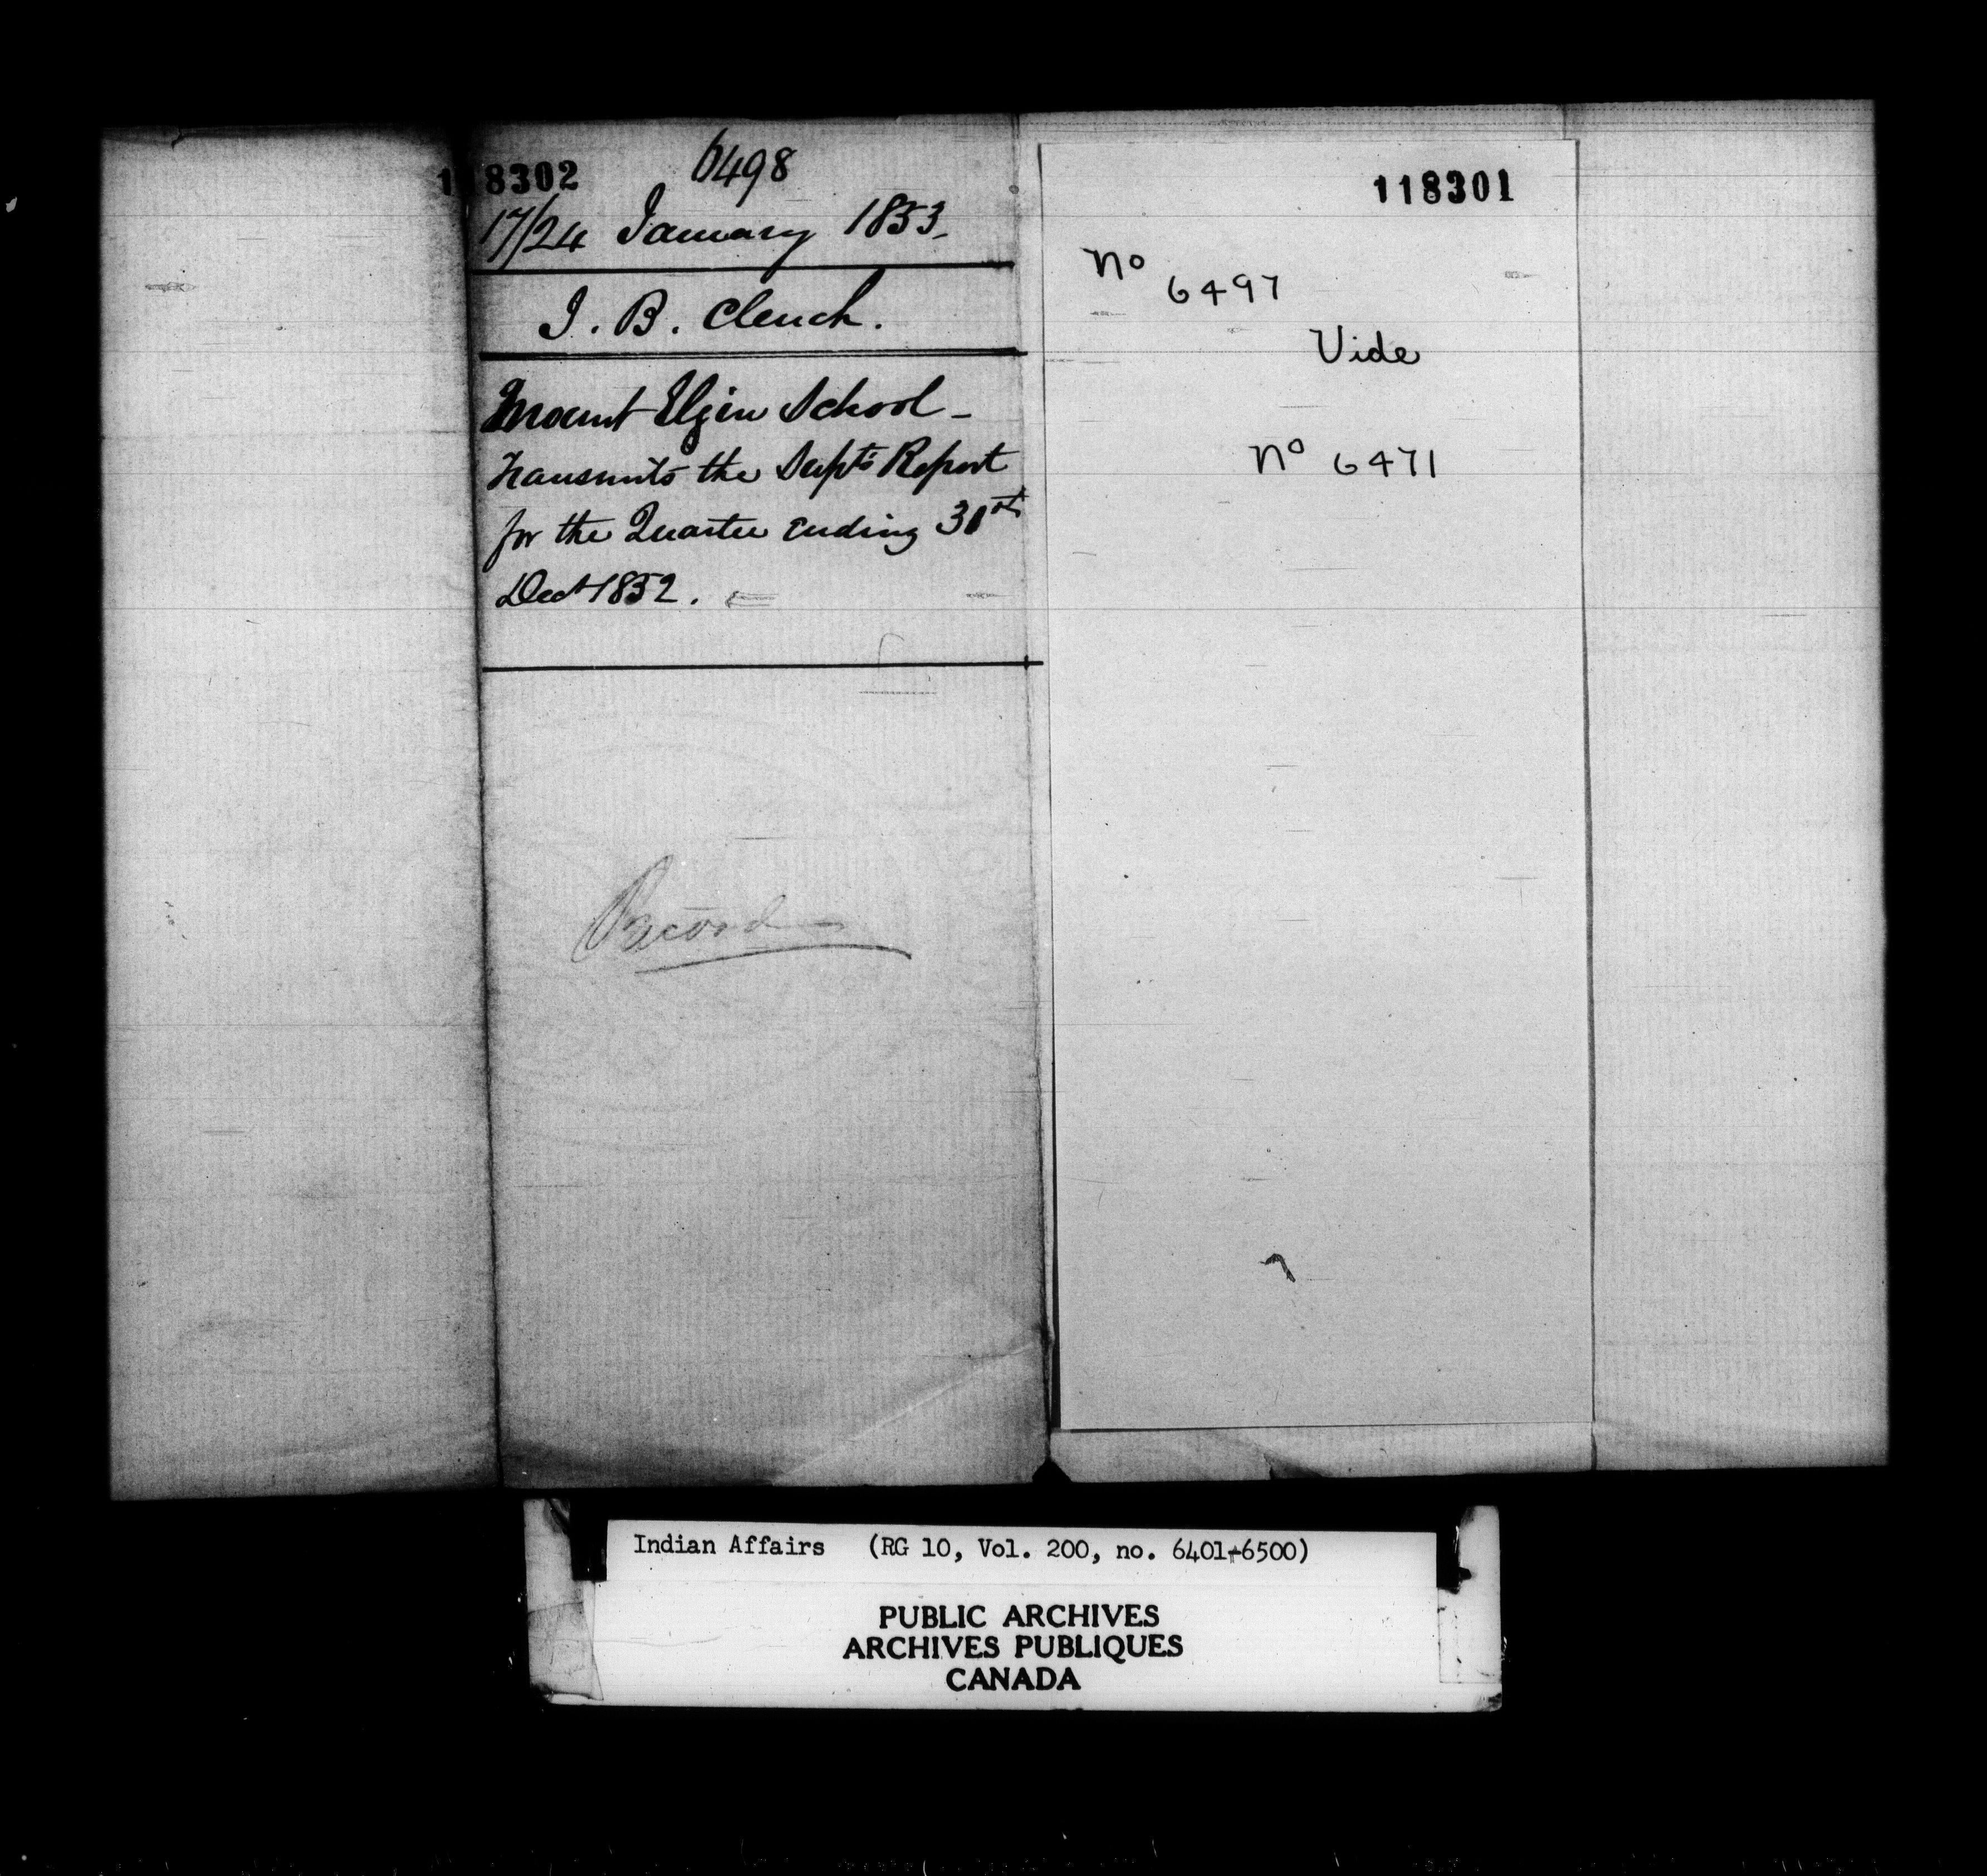 118302
6498
17/24 January 1853.
J. B. Clench.
Mount Elgin School -
Transmits the Supt's Report
for the Quarter ending 31st
Decr 1852.
Record
118301
No
6497
Vide
No 6471
Indian Affairs (RG 10, Vol. 200, no. 6401-6500)
PUBLIC ARCHIVES
ARCHIVES PUBLIQUES
CANADA